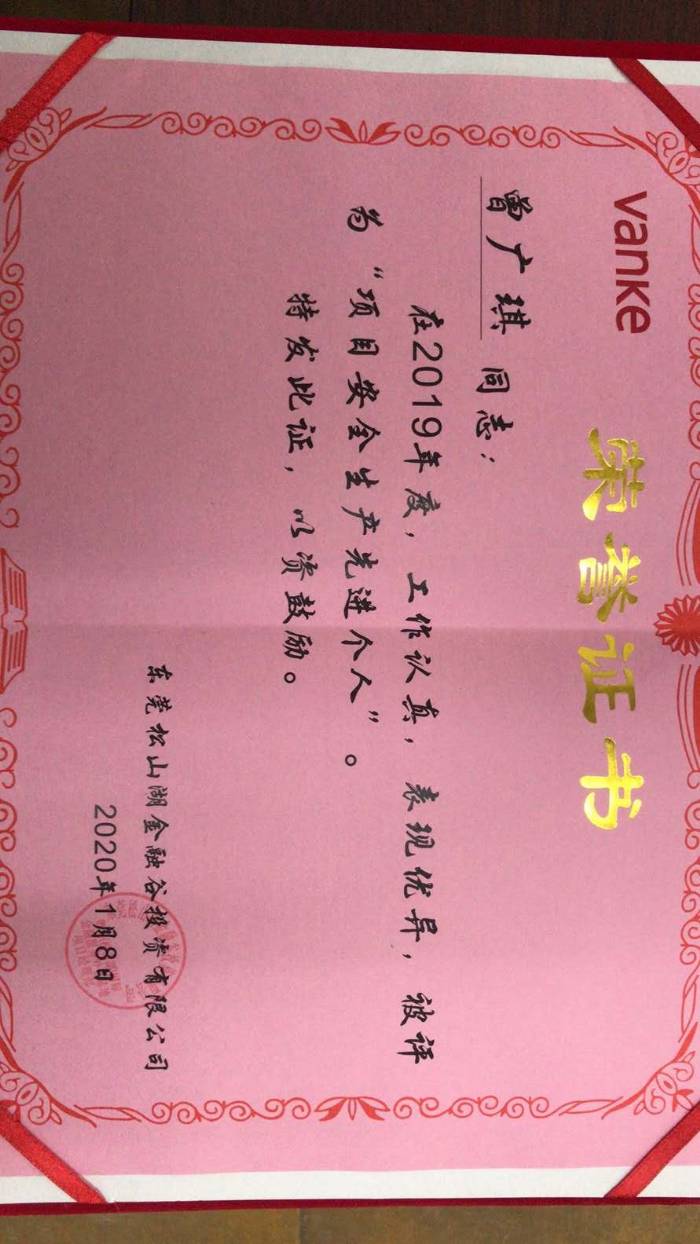 vanke
荣誉证书
曾广琪 同志：
在2019年度，工作认真，表现优异，被评
为“项目安全生产先进个人”。
特发此证，以资鼓励。
东莞松山湖金融谷投资有限公司
2020年1月8日